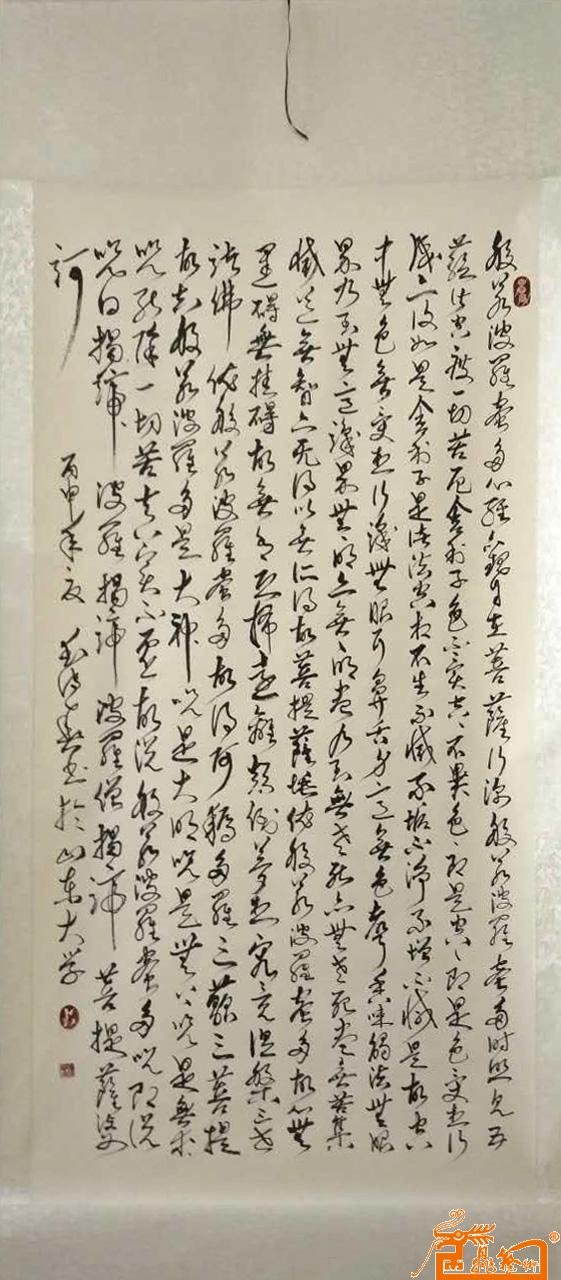 般若波羅蜜多心經 觀自在菩薩行深般若波羅蜜多時照見五
蘊皆空度一切苦厄舍利子色不異空空不異色色即是空空即是色受想行
識亦復如是舍利子是諸法空相不生不滅不垢不淨不增不減是故空
中無色無受想行識無眼耳鼻舌身意無色聲香味觸法無眼
界乃至無意識界無無明亦無無明盡乃至無老死亦無老死盡無苦集
滅道無智亦无得以無所得故菩提薩埵依般若波羅蜜多故心無
罣礙無掛礙故無有恐怖遠離顛倒夢想究竟涅槃三世
諸佛依般若波羅蜜多故得阿耨多羅三藐三菩提
故知般若波羅多是大神咒是大明咒是無上咒是無
咒能除一切苦真實不虛故說般若波羅蜜多咒即說
咒曰揭諦 波羅揭諦 波羅僧揭諦 菩提薩婆
訶
丙申年夏 書於山东大学